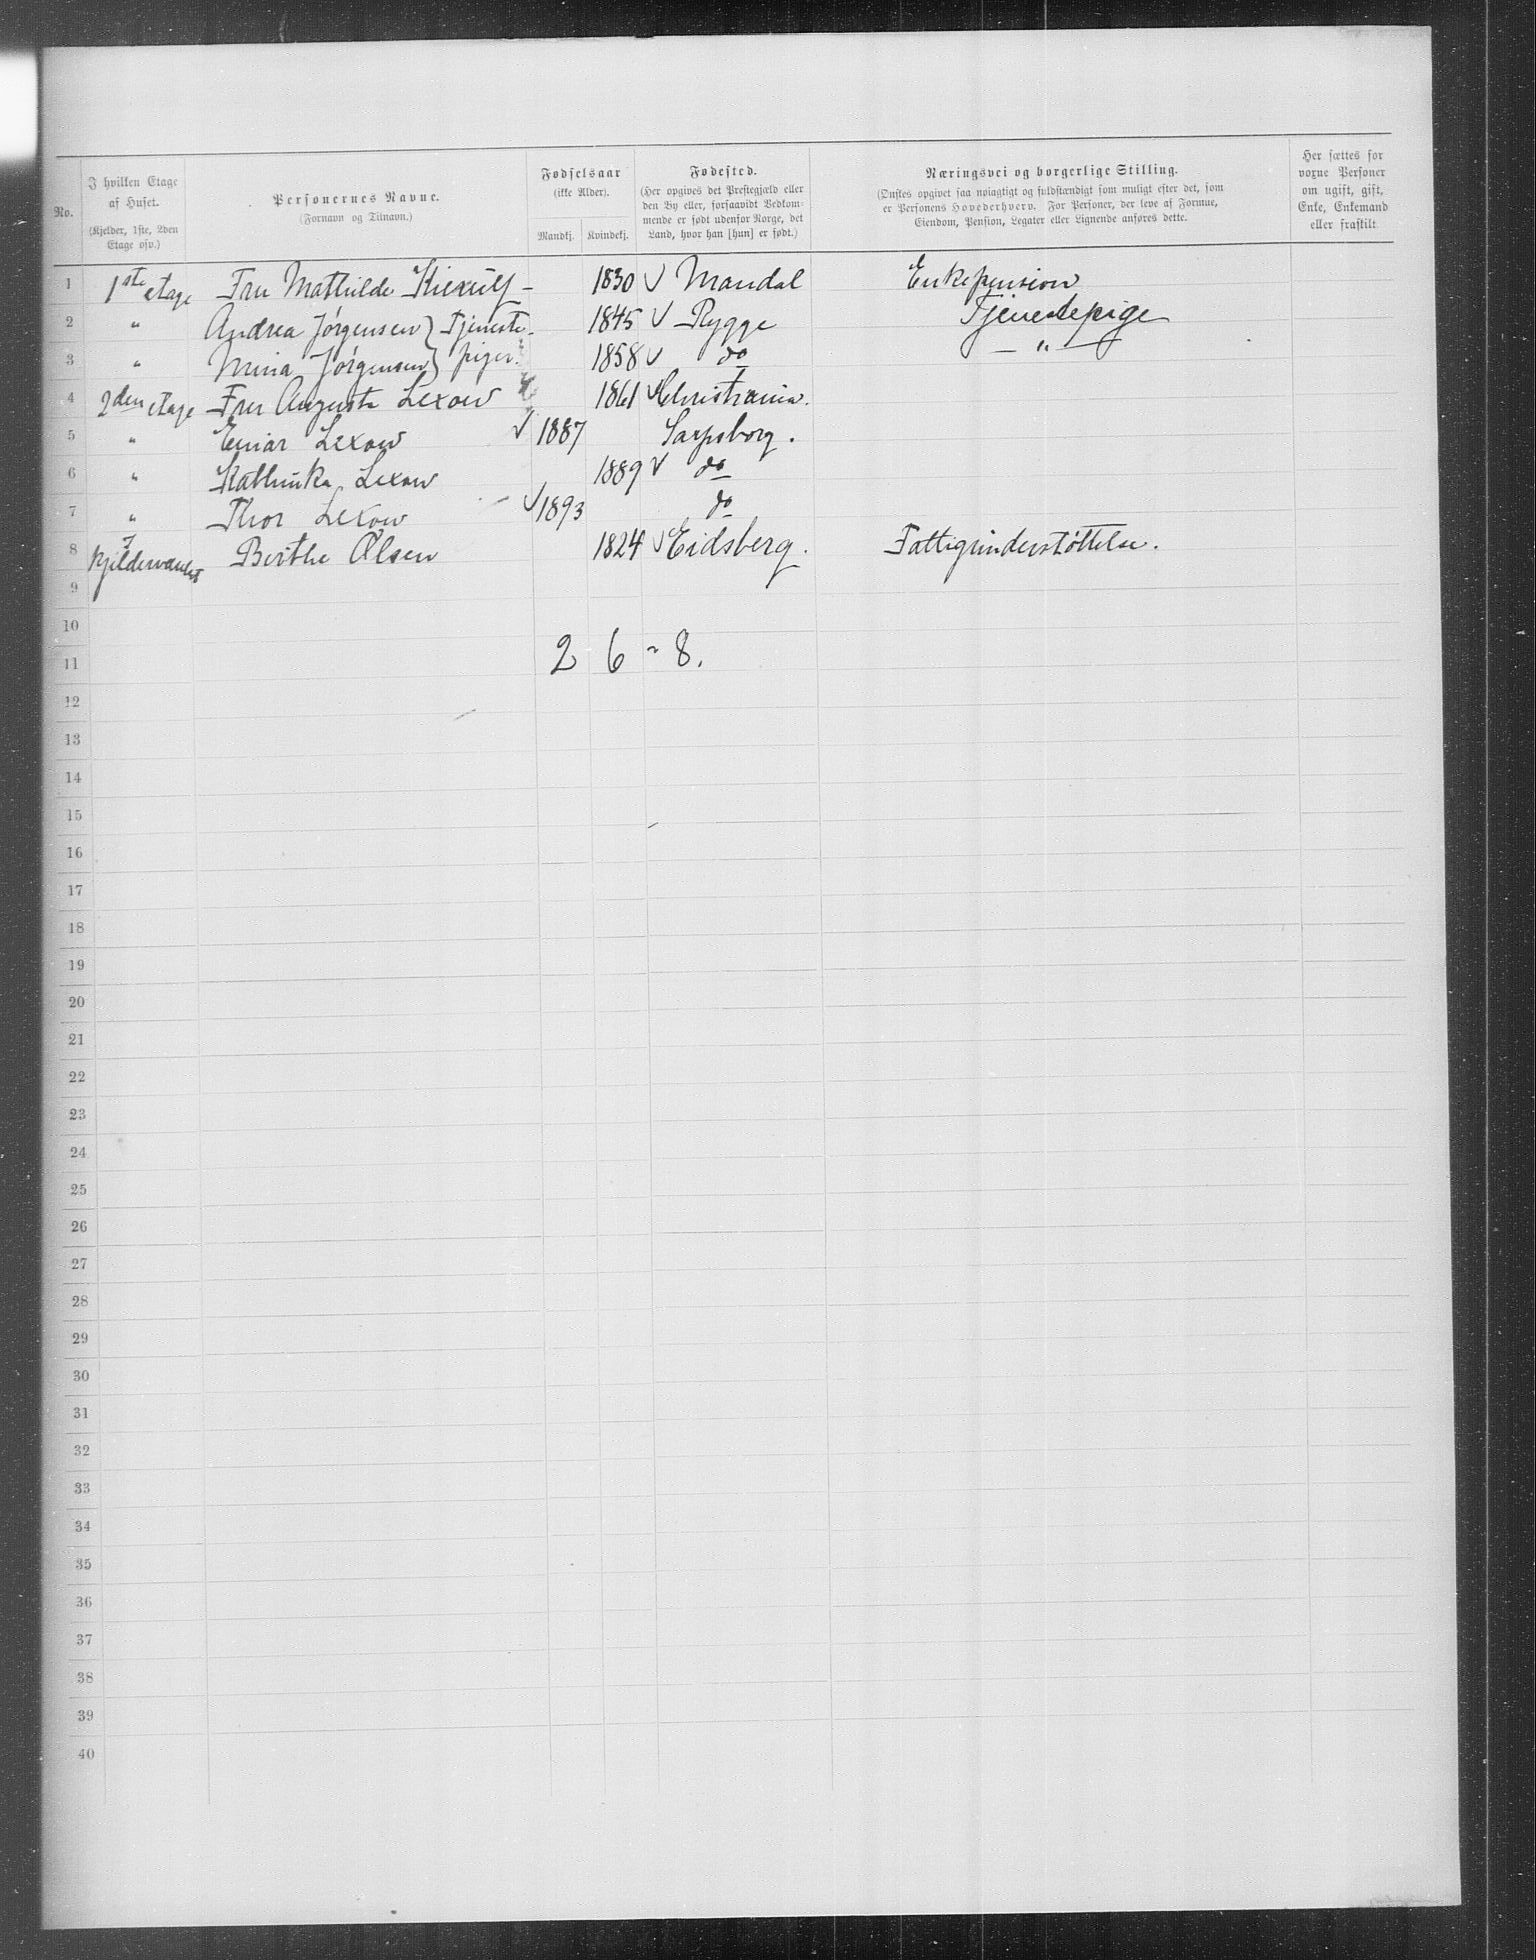 No.
I hvilken Etage af Huset.
(Kjelder, 1ste, 2den Etage osv.)
Personernes Navne.
(Fornavn og Tilnavn.)
Fødselsaar
(ikke Alder).
Mandkj. Kvindekj.
Fødested.
(Her opgives det Prestegjæld eller den By eller, forsaavidt Vedkommende er født udenfor Norge, det Land, hvor han [hun] er født.)
Næringsvei og borgerlige Stilling.
(Ønskes opgivet saa nøiagtigt og fuldstændigt som muligt efter det, som er Personens Hovederhverv. For Personer, der leve af Formue, Eiendom, Pension, Legater eller Lignende anføres dette.
Her sættes for voxne Personer om ugift, gift, Enke, Enkemand eller fraskilt
1 1ste etage Fru Mathilde Kierulf - 1830 √ Mandal Enkepension
2 " Andrea Jørgensen } Tjeneste- 1845 √ Rygge Tjenestepige
3 " Mina Jørgensen } piger. 1858 √ do — " —
4 2den etage Fru Augusta Lexow 1861 √ Christiania.
5 " Einar Lexow √ 1887 Sarpsborg.
6 " Kathinka Lexow 1889 √ do
7 " Thor Lexow √ 1893 do
8 I Birthe Olsen 1824 √ Eidsberg. Fattigunderstøttelse.
9
10
11 2 6 - 8.
12
13
14
15
16
17
18
19
20
21
22
23
24
25
26
27
28
29
30
31
32
33
34
35
36
37
38
39
40